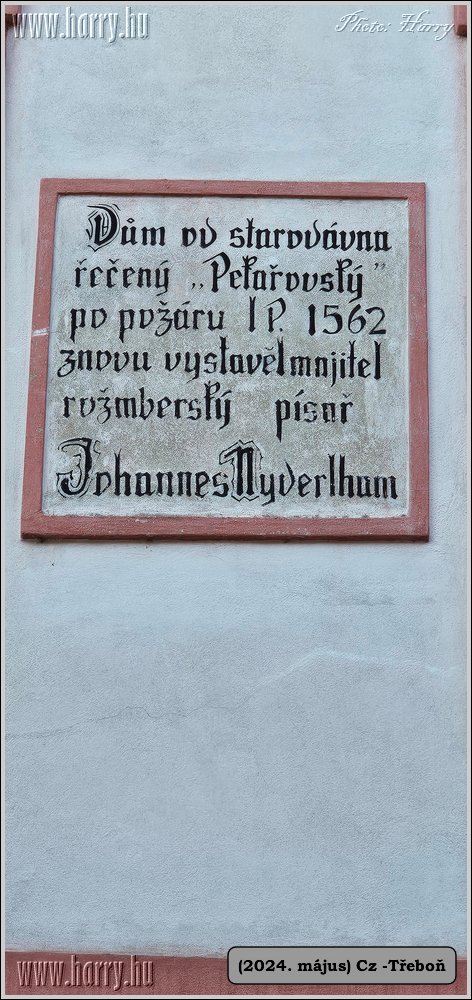 www.harry.hu
Photo: Harry
Dům od starodávna
řečený „Pekařovský”
po požáru l P. 1562
znovu vystavěl majitel
rožmberský písař
Johannes Nyderlhum
www.harry.hu
(2024. május) Cz -Třeboň